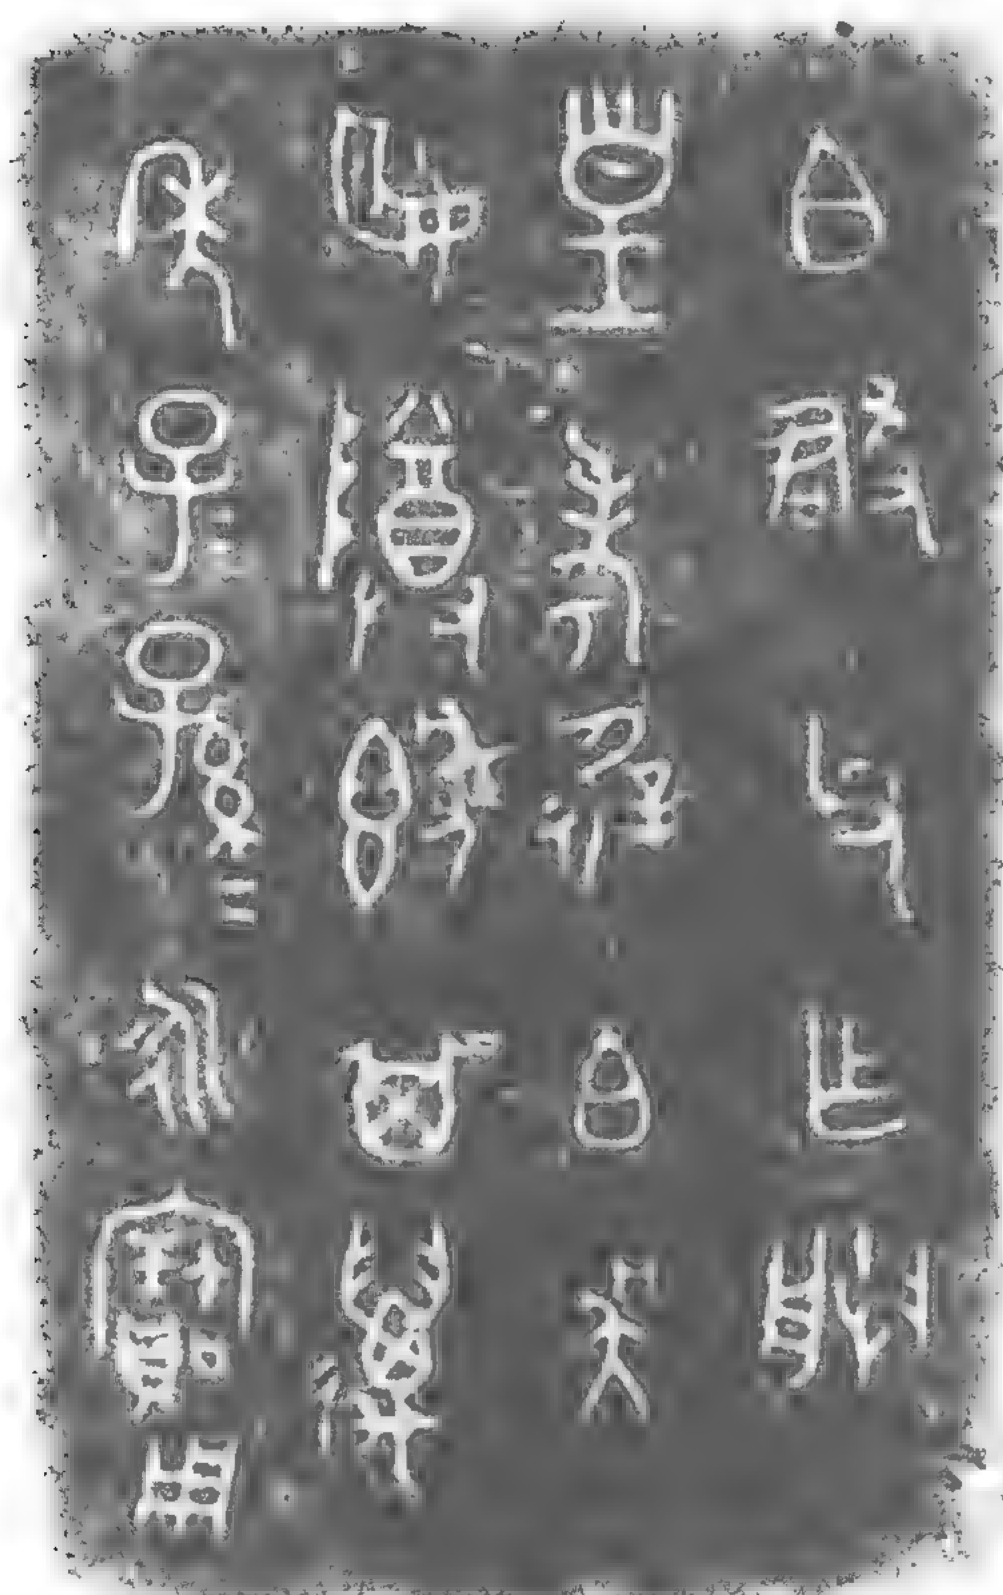 白父乍朕
皇考屖白吳
姬尊𣪘其萬
年子子孫=永寶用